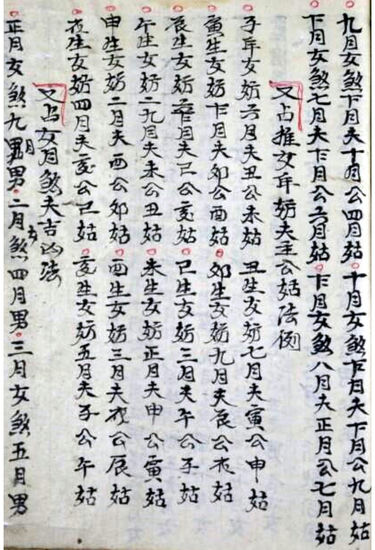 九月女煞月夫十月公四月姑 十月女煞月夫月公九月姑
月女煞七月夫月公月姑 月女煞八月夫正月公七月姑
又占推女年妨夫主公姑法例
子年女妨六月夫丑公未姑 丑生女妨七月夫寅公申姑
寅生女妨月夫卯公酉姑 卯生女妨九月夫辰公戌姑
辰生女妨月夫巳公亥姑 巳生女妨三月夫午公子姑
午生女妨二九月夫未公丑姑 未生女妨正月夫申公寅姑
申生女妨二月夫酉公卯姑 酉生女妨三月夫戌公辰姑
戌生女妨四月夫亥公巳姑 亥生女妨五月夫子公午姑
又占女月煞夫吉凶法
正月女煞九月男 二月女煞四月男 三月女煞五月男